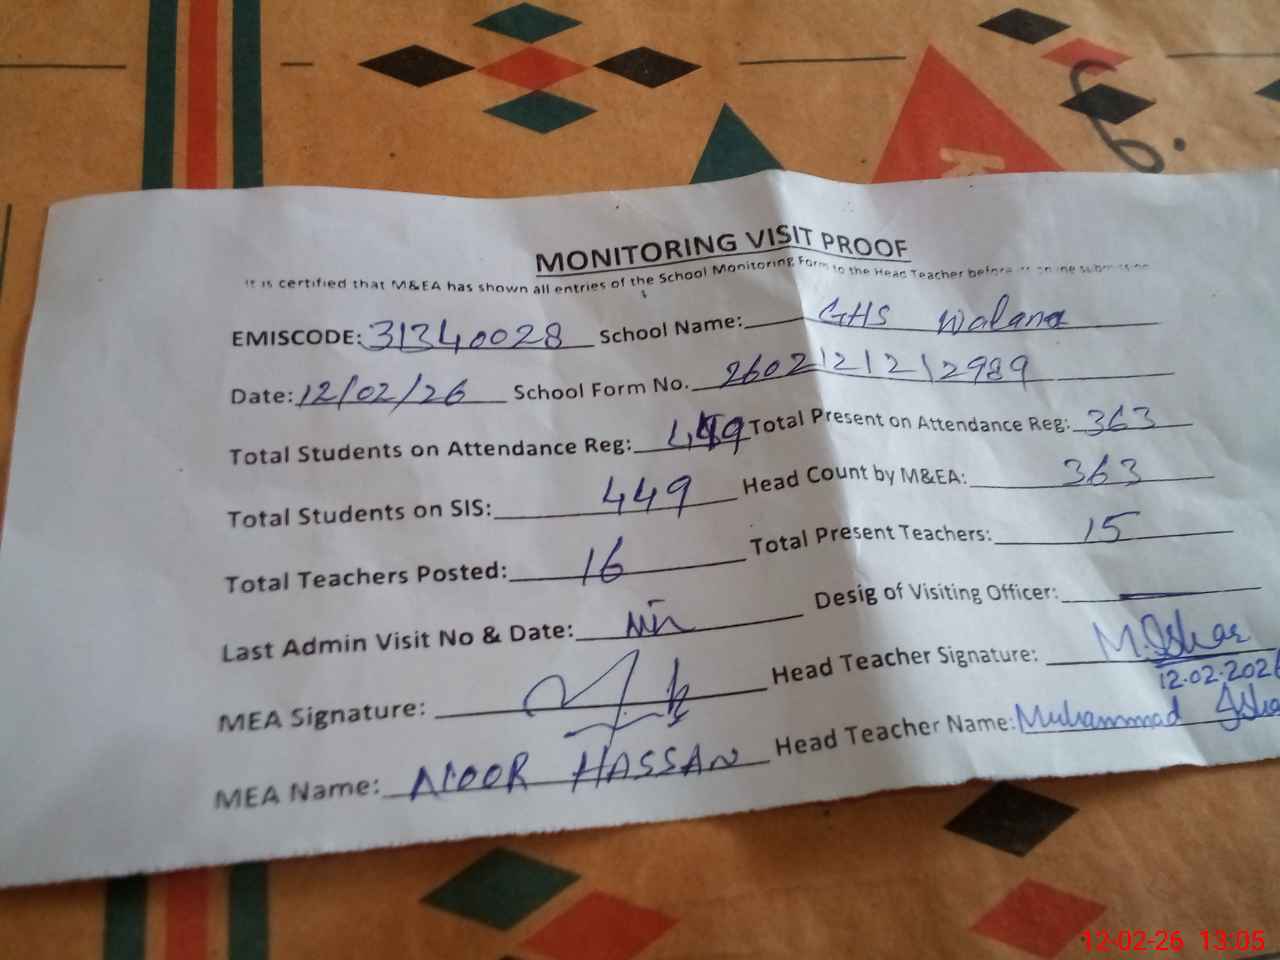 6.
MONITORING VISIT PROOF
It is certified that M&EA has shown all entries of the School Monitoring Form to the Head Teacher before
EMISCODE: 31340028 School Name: GHS Walana
Date: 12/02/26 School Form No. 260212121 2989
Total Students on Attendance Reg: 449 Total Present on Attendance Reg: 363
Total Students on SIS: 449 Head Count by M&EA: 363
Total Teachers Posted: 16 Total Present Teachers: 15
Last Admin Visit No & Date: Nil Desig of Visiting Officer:
MEA Signature: Head Teacher Signature: M.Ishaq
12.02.2026
MEA Name: NOOR HASSAN Head Teacher Name: Muhammad
12-02-26 13:05